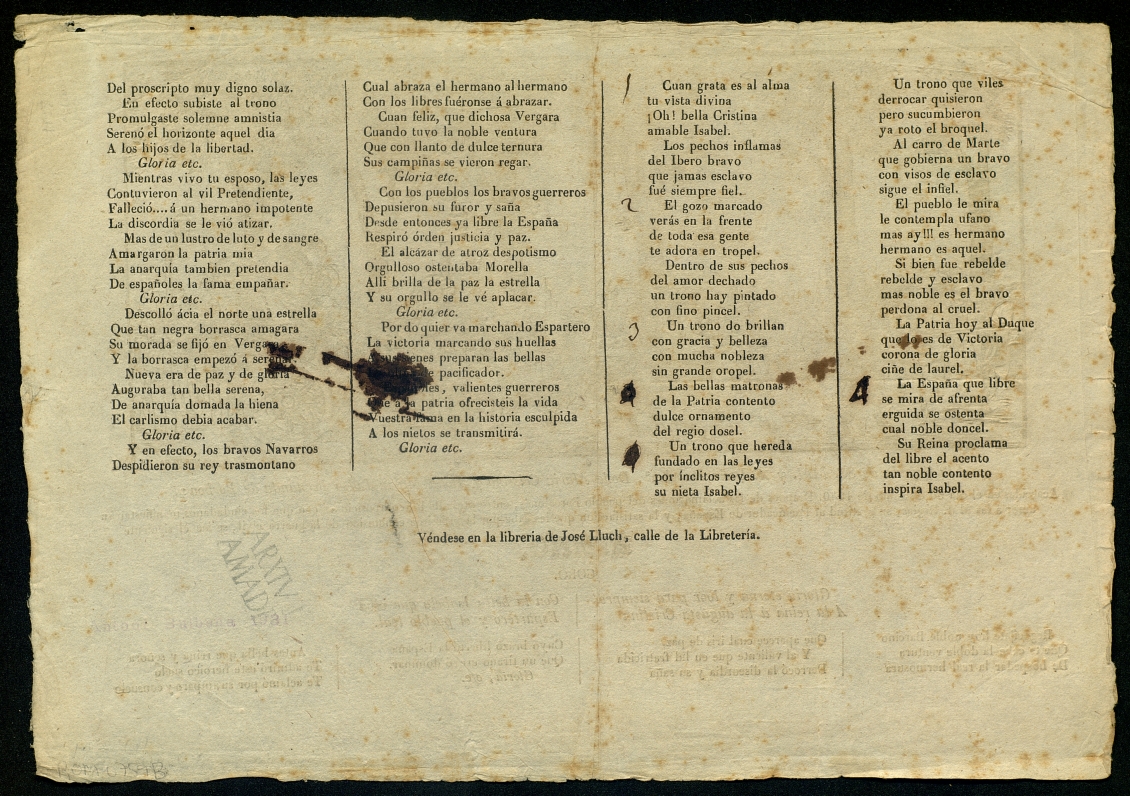 Del proscripto muy digno solaz.
En efecto subiste al trono
Promulgaste solemne amnistia
Serenó el horizonte aquel dia
A los hijos de la libertad.
Gloria etc.
Mientras vivo tu esposo, las leyes
Contuvieron al vil Pretendiente,
Falleció....á un hermano impotente
La discordia se le vió atizar.
Mas de un lustro de luto y de sangre
Amargaron la patria mia
La anarquía tambien pretendia
De españoles la fama empañar.
Gloria etc.
Descolló ácia el norte una estrella
Que tan negra borrasca amagara
Su morada se fijó en Vergara
Y la borrasca empezó á
Nueva era de paz y de gloria
Auguraba tan bella serena,
De anarquía domada la hiena
El carlismo debia acabar.
Gloria etc.
Y en efecto, los bravos Navarros
Despidieron su rey trasmontano
Cual abraza el hermano al hermano
Con los libres fuéronse á abrazar.
Cuan feliz, que dichosa Vergara
Cuando tuvo la noble ventura
Que con llanto de dulce ternura
Sus campiñas se vieron regar.
Gloria etc.
Con los pueblos los bravos guerreros
Depusieron su furor y saña
Desde entonces ya libre la España
Respiró órden justicia y paz.
El alcázar de atroz despotismo
Orgulloso ostentaba Morella
Alli brilla de la paz la estrella
Y su orgullo se le vé aplacar.
Gloria etc.
Por do quier va marchando Espartero
La victoria marcando sus huellas
preparan las bellas
pacificador.
valientes guerreros
Que a la patria ofrecisteis la vida
Vuestra fama en la historia esculpida
A los nietos se transmitirá.
Gloria etc.
1
Cuan grata es al alma
tu vista divina
¡Oh! bella Cristina
amable Isabel.
Los pechos inflamas
del Ibero bravo
que jamas esclavo
fué siempre fiel.
2
El gozo marcado
verás en la frente
de toda esa gente
te adora en tropel.
Dentro de sus pechos
del amor dechado
un trono hay pintado
con fino pincel.
3
Un trono do brillan
con gracia y belleza
con mucha nobleza
sin grande oropel.
Las bellas matronas
de la Patria contento
dulce ornamento
del regio dosel.
Un trono que hereda
fundado en las leyes
por ínclitos reyes
su nieta Isabel.
Un trono que viles
derrocar quisieron
pero sucumbieron
ya roto el broquel.
Al carro de Marte
que gobierna un bravo
con visos de esclavo
sigue el infiel.
El pueblo le mira
le contempla ufano
mas ay!!! es hermano
hermano es aquel.
Si bien fue rebelde
rebelde y esclavo
mas noble es el bravo
perdona al cruel.
La Patria hoy al Duque
que lo es de Victoria
corona de gloria
ciñe de laurel.
4
La España que libre
se mira de afrenta
erguida se ostenta
cual noble doncel.
Su Reina proclama
del libre el acento
tan noble contento
inspira Isabel.
Véndese en la libreria de José Lluch, calle de la Libretería.
ARXIU
AMADES